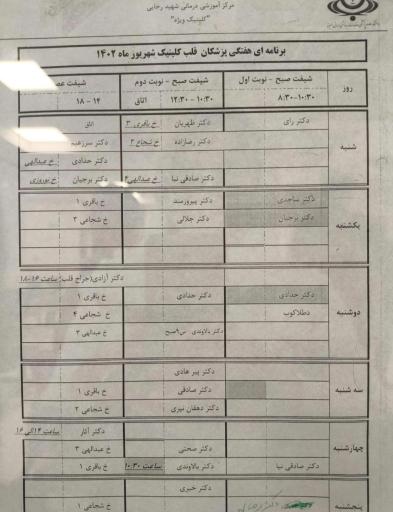 مرکز آموزشی درمانی شهید رجایی
"کلینیک ویژه"
برنامه ای هفتگی پزشکان قلب کلینیک شهریور ماه ۱۴۰۲
روز شیفت صبح - نوبت اول شیفت صبح - نوبت دوم شیفت عصر
۸:۳۰-۱۰:۳۰ ۱۰:۳۰ - ۱۲:۳۰ اتاق ۱۴ - ۱۸
شنبه
دکتر رای دکتر طهریان خ باقری ۳ اتاق
دکتر رضازاده خ شجاع ۲
دکتر حدادی خ عبدالهی
دکتر صادقی نیا خ عبدالهی ۴ دکتر برجیان خ نوروزی
یکشنبه
دکتر ساجدی دکتر پیرورمند خ باقری ۱
دکتر برجیان دکتر جلالی خ شجاعی ۲
دوشنبه
دکتر آزادی(جراح قلب) ساعت ۱۶-۱۸
دکتر حدادی دکتر حدادی خ باقری ۱
دطلاکوب خ شجاعی ۴
دکتر بالاوندی س۹صبح خ عبدالهی ۳
سه شنبه
دکتر پیر هادی
دکتر صادقی خ باقری ۱
دکتر دهقان نیری خ شجاعی ۲
چهارشنبه
دکتر آثار ساعت ۱۴الی ۱۶
دکتر صحتی خ عبدالهی ۳
دکتر صادقی نیا دکتر بالاوندی ساعت ۱۰:۳۰ خ باقری ۱
پنجشنبه
دکتر خیری
خ شجاعی ۱